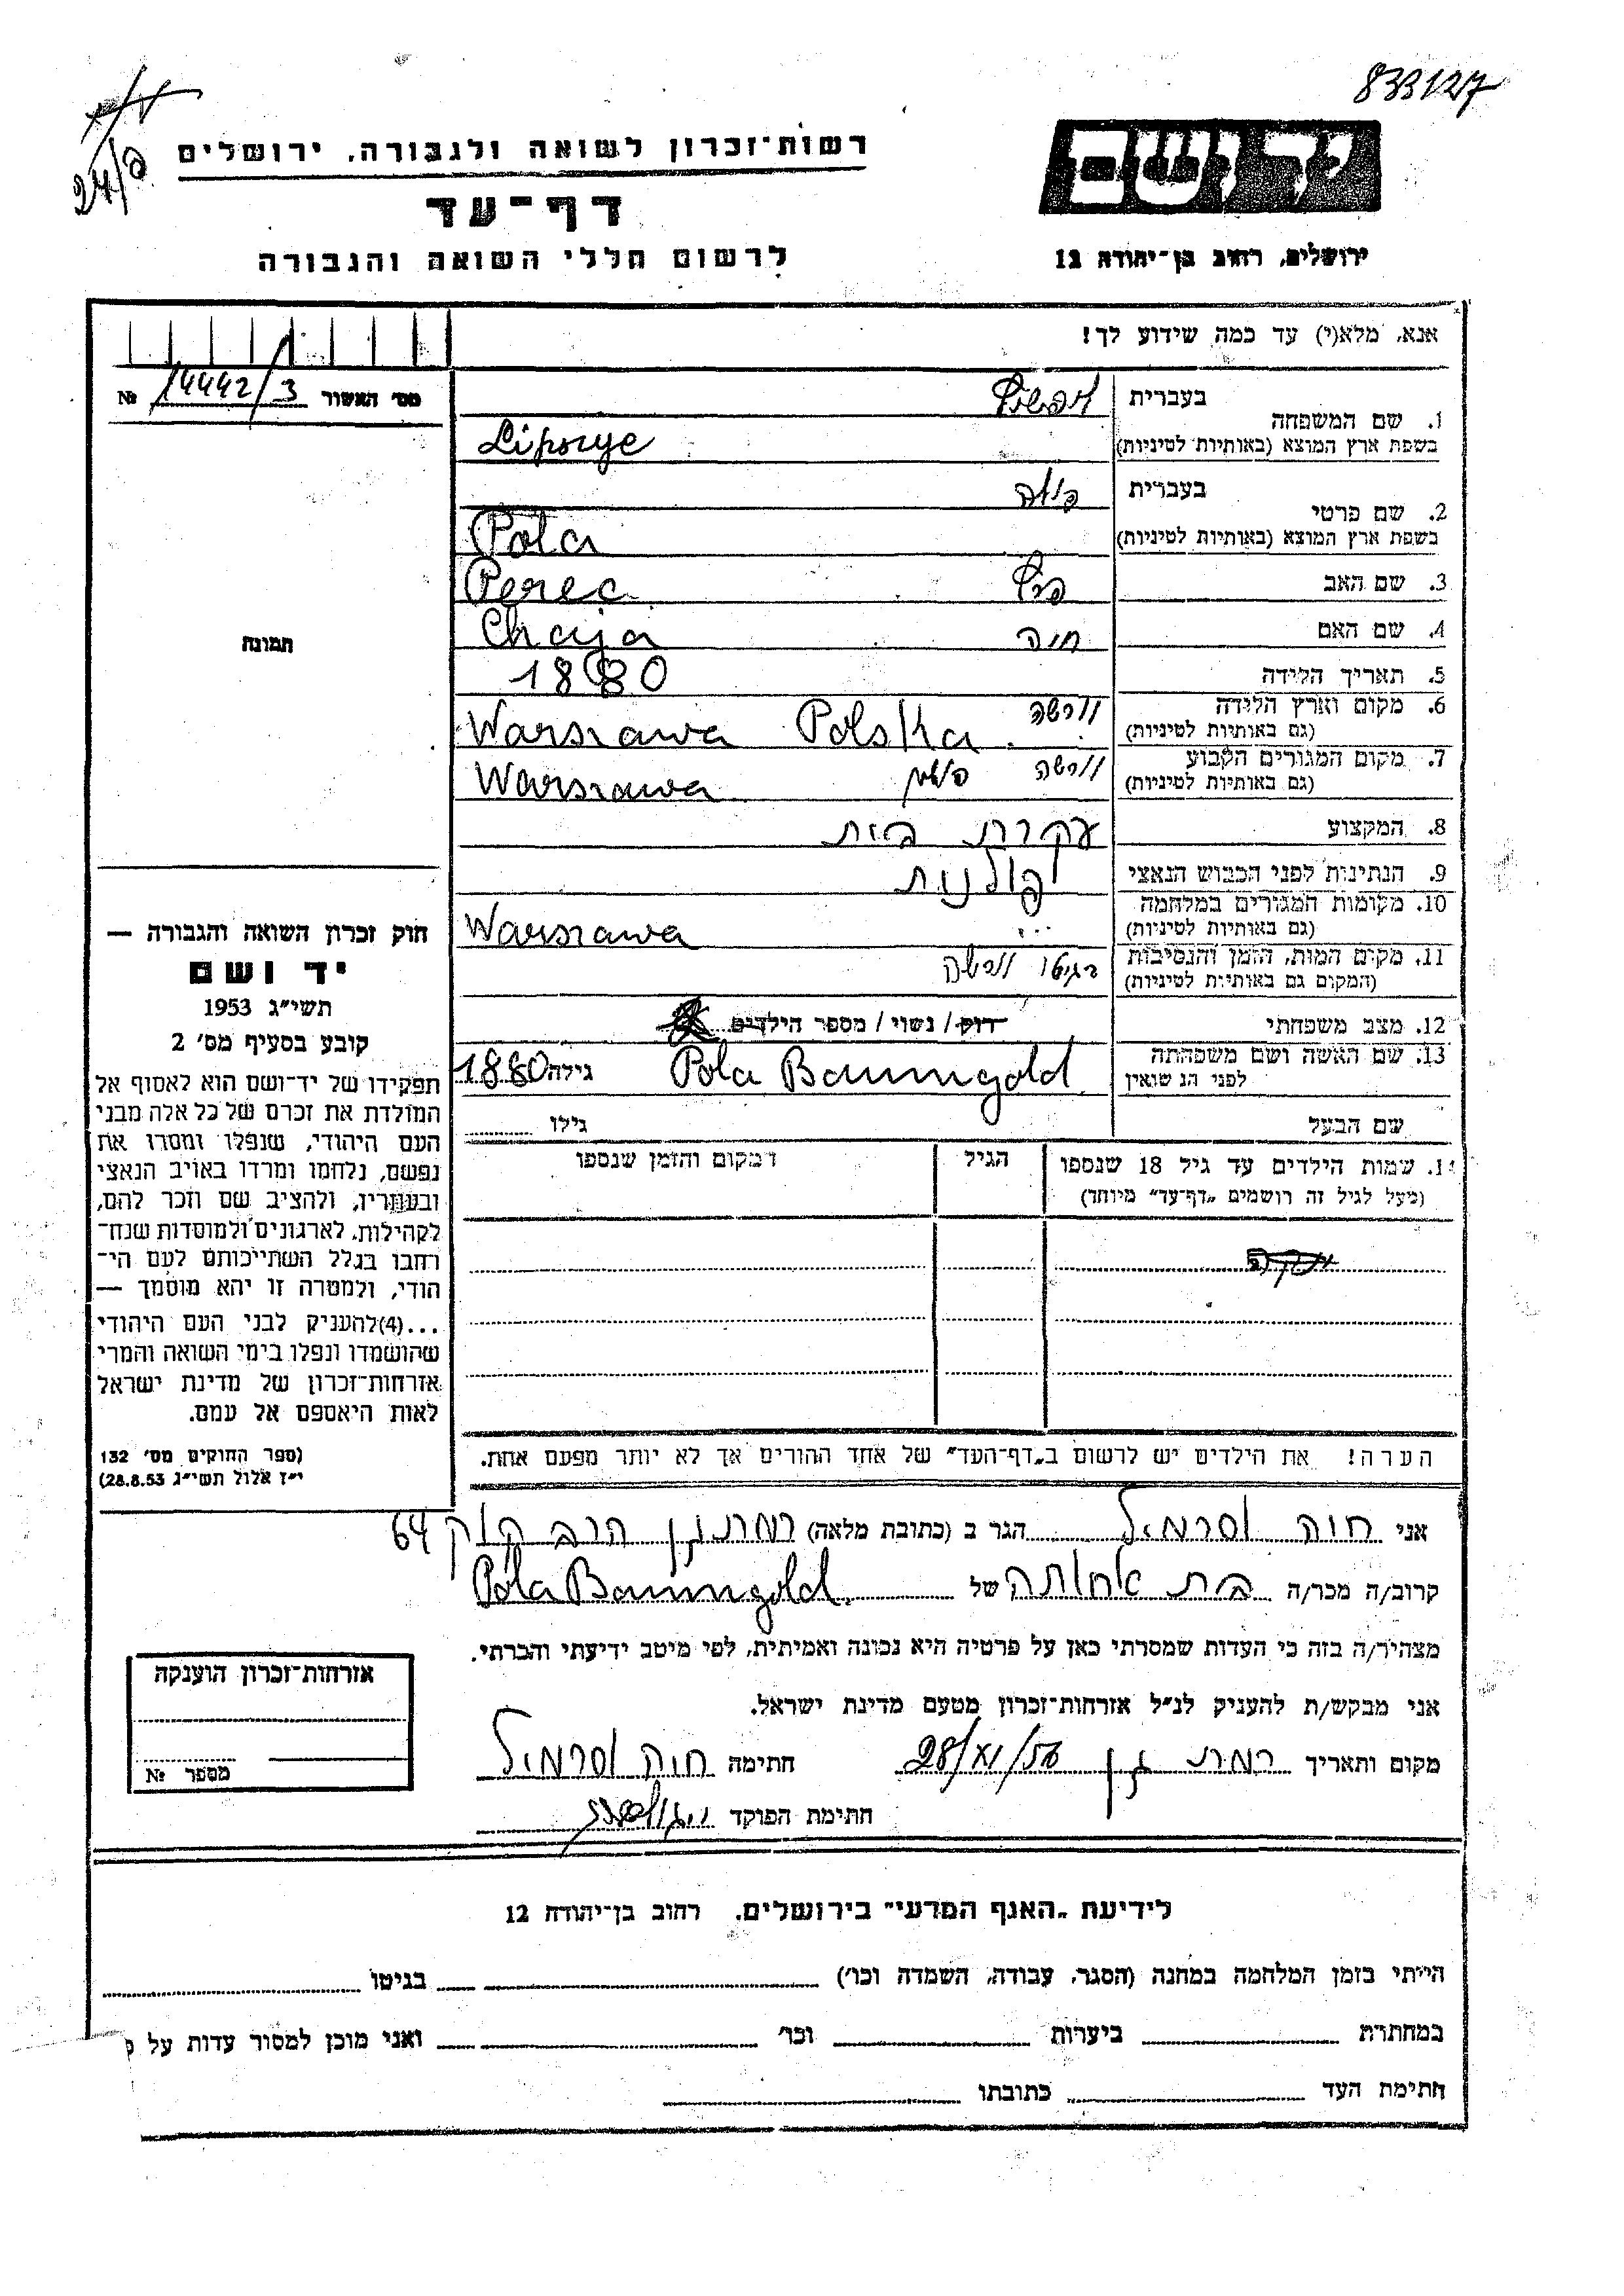 833127
24/ב
רשות־זכרון לשואה ולגבורה, ירושלים
יד ושם
דף־עד
לרשום חללי השואה והגבורה
ירושלים, רחוב בן־יהודה 12
אנא, מלא(י) עד כמה שידוע לך!
מס׳ האשור 14442/3 №
בעברית
1. שם המשפחה
בשפת ארץ המוצא (באותיות לטיניות) Lipszyc
בעברית פולה
2. שם פרטי
בשפת ארץ המוצא (באותיות לטיניות) Pola
3. שם האב פרץ Perec
4. שם האם חיה Chaja
5. תאריך הלידה 1880
6. מקום וארץ הלידה וורשה Warszawa Polska
(גם באותיות לטיניות)
7. מקום המגורים הקבוע וורשה פולין Warszawa
(גם באותיות לטיניות)
8. המקצוע עקרת בית
9. הנתינות לפני הכבוש הנאצי פולנית
10. מקומות המגורים במלחמה Warszawa
(גם באותיות לטיניות)
11. מקום המות, הזמן והנסיבות בגיטו וורשה
(המקום גם באותיות לטיניות)
12. מצב משפחתי רוק / נשוי / מספר הילדים
13. שם האשה ושם משפחתה Pola Baumgold גילה 1880
לפני הנשואין
שם הבעל גילו
14. שמות הילדים עד גיל 18 שנספו הגיל המקום והזמן שנספו
(מעל לגיל זה רושמים „דף־עד״ מיוחד)
תמונה
חוק זכרון השואה והגבורה —
יד ושם
תשי״ג 1953
קובע בסעיף מס׳ 2
תפקידו של יד־ושם הוא לאסוף אל
המולדת את זכרם של כל אלה מבני
העם היהודי, שנפלו ומסרו את
נפשם, נלחמו ומרדו באויב הנאצי
ובעוזריו, ולהציב שם וזכר להם,
לקהילות, לארגונים ולמוסדות שנח־
רחבו בגלל השתייכותם לעם הי־
הודי, ולמטרה זו יהא מוסמך —
...(4) להעניק לבני העם היהודי
שהושמדו ונפלו בימי השואה והמרי
אזרחות־זכרון של מדינת ישראל
לאות היאספם אל עמם.
(ספר החוקים מס׳ 132
י״ז אלול תשי״ג 28.8.53)
הערה! את הילדים יש לרשום ב„דף־העד״ של אחד ההורים אך לא יותר מפעם אחת.
אני חוה הגר ב (כתובת מלאה) רמת גן הרב קוק 64
קרוב/ה מכר/ה בת אחותה של Pola Baumgold
מצהיר/ה בזה כי העדות שמסרתי כאן על פרטיה היא נכונה ואמיתית, לפי מיטב ידיעתי והכרתי.
אני מבקש/ת להעניק לנ״ל אזרחות־זכרון מטעם מדינת ישראל.
מקום ותאריך רמת גן 28/XI/56 חתימה חוה
חתימת הפוקד
אזרחות־זכרון הוענקה
מספר №
לידיעת „האגף המדעי״ בירושלים, רחוב בן־יהודה 12
הייתי בזמן המלחמה במחנה (הסגר, עבודה, השמדה וכו׳) בגיטו
במחתרת ביערות וכו׳ ואני מוכן למסור עדות על
חתימת העד כתובתו